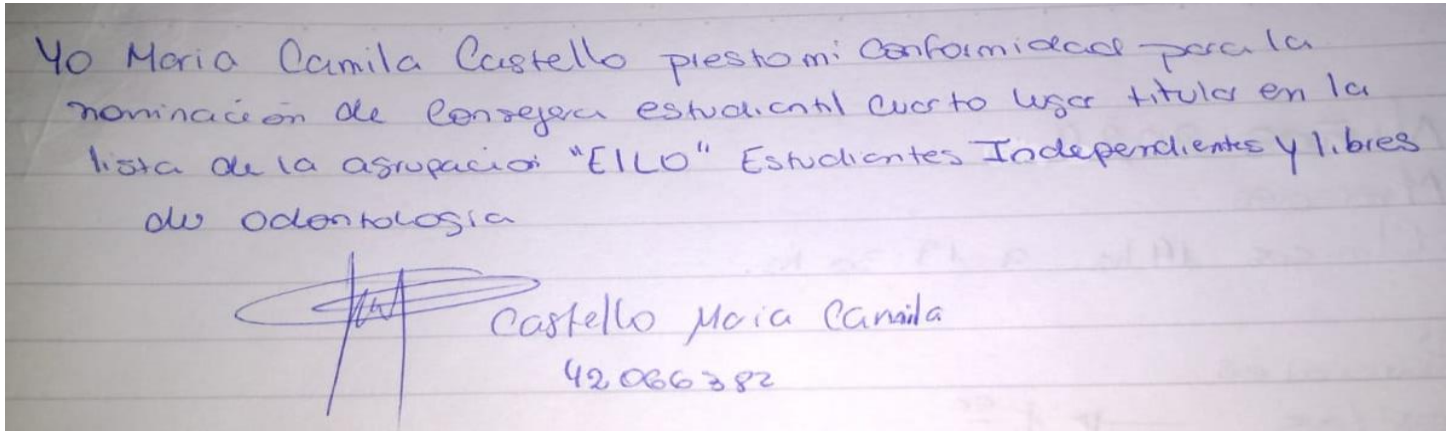 Yo Maria Camila Castello presto mi Conformidad para la
nominación de Consejera estudiantil cuarto lugar titular en la
lista de la agrupacion "EILO" Estudiantes Independientes y libres
de Odontologia
Castello Maria Camila
42066382